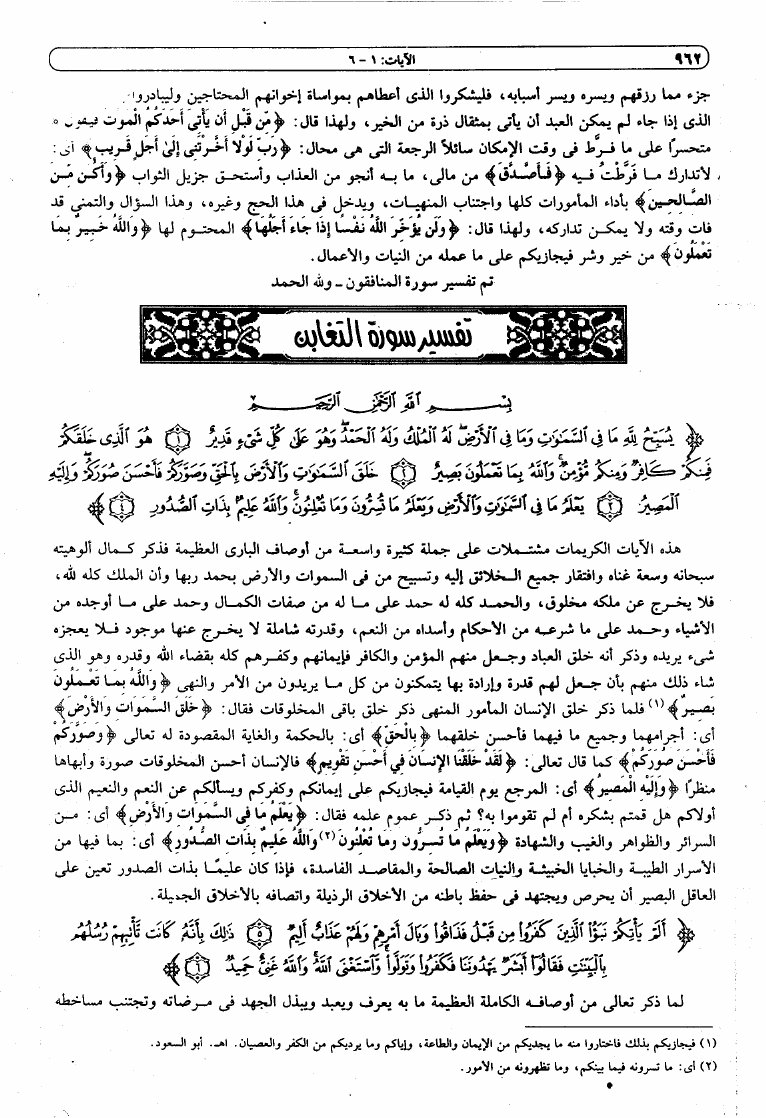 ٩٦٢ الآيات: ١ - ٦
جزء مما رزقهم ويسره ويسر أسبابه، فليشكروا الذى أعطاهم بمواساة إخوانهم المحتاجين وليبادروا
الذى إذا جاء لم يمكن العبد أن يأتى بمثقال ذرة من الخير، ولهذا قال: ﴿مِّن قَبْلِ أَن يَأْتِيَ أَحَدَكُمُ الْمَوْتُ فيقول
متحسراً على ما فرَّط فى وقت الإمكان سائلاً الرجعة التى هى محال: ﴿رَبِّ لَوْلا أَخَّرْتَنِي إِلَىٰ أَجَلٍ قَرِيبٍ﴾ أى:
لأتدارك ما فَرَّطتُ فيه ﴿فَأَصَّدَّقَ﴾ من مالى، ما به أنجو من العذاب وأستحق جزيل الثواب ﴿وَأَكُن مِّنَ
الصَّالِحِينَ﴾ بأداء المأمورات كلها واجتناب المنهيات، ويدخل فى هذا الحج وغيره، وهذا السؤال والتمنى قد
فات وقته ولا يمكن تداركه، ولهذا قال: ﴿وَلَن يُؤَخِّرَ اللَّهُ نَفْسًا إِذَا جَاءَ أَجَلُهَا﴾ المحتوم لها ﴿وَاللَّهُ خَبِيرٌ بِمَا
تَعْمَلُونَ﴾ من خير وشر فيجازيكم على ما عمله من النيات والأعمال.
تم تفسير سورة المنافقون ـ ولله الحمد
تفسير سورة التغابن
بِسْمِ اللَّهِ الرَّحْمَٰنِ الرَّحِيمِ
﴿ يُسَبِّحُ لِلَّهِ مَا فِي السَّمَٰوَٰتِ وَمَا فِي الْأَرْضِ لَهُ الْمُلْكُ وَلَهُ الْحَمْدُ وَهُوَ عَلَىٰ كُلِّ شَيْءٍ قَدِيرٌ ١ هُوَ الَّذِي خَلَقَكُمْ
فَمِنكُمْ كَافِرٌ وَمِنكُم مُّؤْمِنٌ وَاللَّهُ بِمَا تَعْمَلُونَ بَصِيرٌ ٢ خَلَقَ السَّمَٰوَٰتِ وَالْأَرْضَ بِالْحَقِّ وَصَوَّرَكُمْ فَأَحْسَنَ صُوَرَكُمْ وَإِلَيْهِ
الْمَصِيرُ ٣ يَعْلَمُ مَا فِي السَّمَٰوَٰتِ وَالْأَرْضِ وَيَعْلَمُ مَا تُسِرُّونَ وَمَا تُعْلِنُونَ وَاللَّهُ عَلِيمٌ بِذَاتِ الصُّدُورِ ٤ ﴾
هذه الآيات الكريمات مشتملات على جملة كثيرة واسعة من أوصاف البارى العظيمة فذكر كمال ألوهيته
سبحانه وسعة غناه وافتقار جميع الخلائق إليه وتسبيح من فى السموات والأرض بحمد ربها وأن الملك كله لله،
فلا يخرج عن ملكه مخلوق، والحمد كله له حمد على ما له من صفات الكمال وحمد على ما أوجده من
الأشياء وحمد على ما شرعه من الأحكام وأسداه من النعم، وقدرته شاملة لا يخرج عنها موجود فلا يعجزه
شىء يريده وذكر أنه خلق العباد وجعل منهم المؤمن والكافر فإيمانهم وكفرهم كله بقضاء الله وقدره وهو الذى
شاء ذلك منهم بأن جعل لهم قدرة وإرادة بها يتمكنون من كل ما يريدون من الأمر والنهى ﴿وَاللَّهُ بِمَا تَعْمَلُونَ
بَصِيرٌ﴾(١) فلما ذكر خلق الإنسان المأمور المنهى ذكر خلق باقى المخلوقات فقال: ﴿خَلَقَ السَّمَوَاتِ وَالأَرْضَ﴾
أى: أجرامهما وجميع ما فيهما فأحسن خلقهما ﴿بِالْحَقِّ﴾ أى: بالحكمة والغاية المقصودة له تعالى ﴿وَصَوَّرَكُمْ
فَأَحْسَنَ صُوَرَكُمْ﴾ كما قال تعالى: ﴿لَقَدْ خَلَقْنَا الإِنسَانَ فِي أَحْسَنِ تَقْوِيمٍ﴾ فالإنسان أحسن المخلوقات صورة وأبهاها
منظرًا ﴿وَإِلَيْهِ الْمَصِيرُ﴾ أى: المرجع يوم القيامة فيجازيكم على إيمانكم وكفركم ويسألكم عن النعم والنعيم الذى
أولاكم هل قمتم بشكره أم لم تقوموا به؟ ثم ذكر عموم علمه فقال: ﴿يَعْلَمُ مَا فِي السَّمَوَاتِ وَالأَرْضِ﴾ أى: من
السرائر والظواهر والغيب والشهادة ﴿وَيَعْلَمُ مَا تُسِرُّونَ وَمَا تُعْلِنُونَ(٢) وَاللَّهُ عَلِيمٌ بِذَاتِ الصُّدُورِ﴾ أى: بما فيها من
الأسرار الطيبة والخبايا الخبيثة والنيات الصالحة والمقاصد الفاسدة، فإذا كان عليمًا بذات الصدور تعين على
العاقل البصير أن يحرص ويجتهد فى حفظ باطنه من الأخلاق الرذيلة واتصافه بالأخلاق الجميلة.
﴿ أَلَمْ يَأْتِكُمْ نَبَؤُا الَّذِينَ كَفَرُوا مِن قَبْلُ فَذَاقُوا وَبَالَ أَمْرِهِمْ وَلَهُمْ عَذَابٌ أَلِيمٌ ٥ ذَٰلِكَ بِأَنَّهُ كَانَت تَّأْتِيهِمْ رُسُلُهُم
بِالْبَيِّنَٰتِ فَقَالُوا أَبَشَرٌ يَهْدُونَنَا فَكَفَرُوا وَتَوَلَّوا وَّاسْتَغْنَى اللَّهُ وَاللَّهُ غَنِيٌّ حَمِيدٌ ٦ ﴾
لما ذكر تعالى من أوصافه الكاملة العظيمة ما به يعرف ويعبد ويبذل الجهد فى مرضاته وتجتنب مساخطه
(١) فيجازيكم بذلك فاختاروا منه ما يجديكم من الإيمان والطاعة، وإياكم وما يرديكم من الكفر والعصيان. اهـ. أبو السعود.
(٢) أى: ما تسرونه فيما بينكم، وما تظهرونه من الأمور.